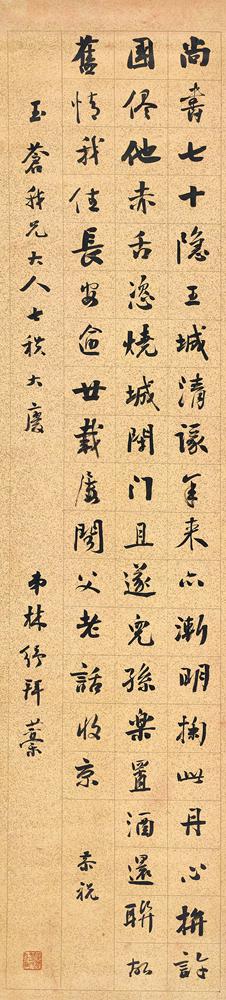 尚書七十隐王城清議年来亦漸明掬此丹心拚許
國侭他赤舌恣燒城閉门且遂兒孫樂置酒還聨故
舊情我住長安逾廿載屡闻父老話收京 恭祝
玉蒼我兄大人七袟大慶 弟林纾拜藁